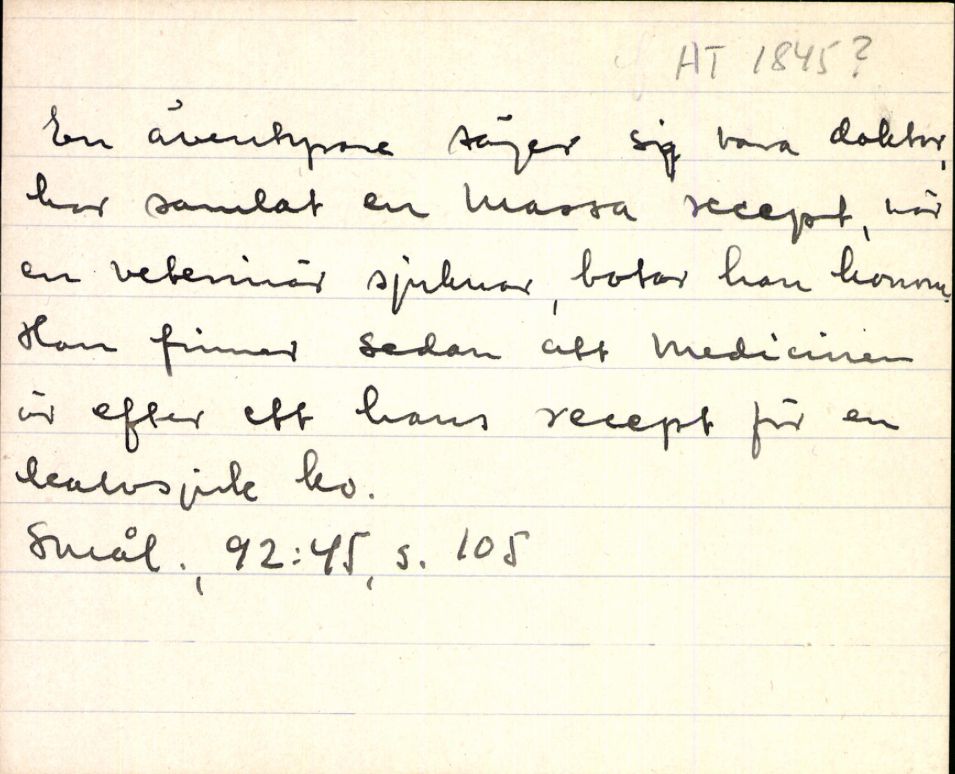 AT 1845?
En äventyrare säger sig vara doktor,
har samlat en massa recept, när
en veterinär sjuknar, botar han honom.
Han finner sedan att medicinen
är efter ett hans recept för en
kalvsjuk ko.
Smål., 92:45, s. 105